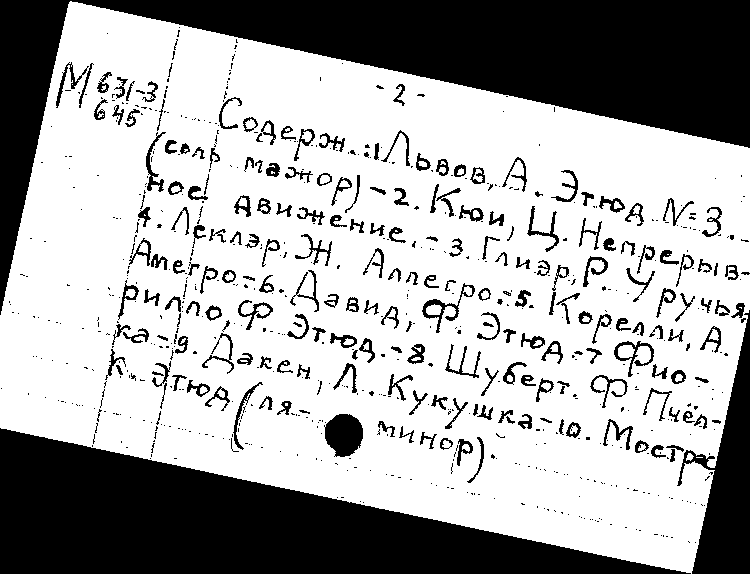 - 2 -
М 631-3
645
Содерж.:1 Львов, А. Этюд №3.-
(соль мажор) - 2. Кюи, Ц. Непрерыв-
ное движение. - 3. Глиэр, Р. У ручья,
4. Леклэр, Ж. Аллегро.-5. Корелли, А.
Аллегро.-6. Давид, Ф. Этюд.-7 Фио-
рилло, Ф. Этюд.-8. Шуберт. Ф. Пчёл-
ка.-9. Дакен, Л. Кукушка.-10. Мострас,
К. Этюд (ля- минор).